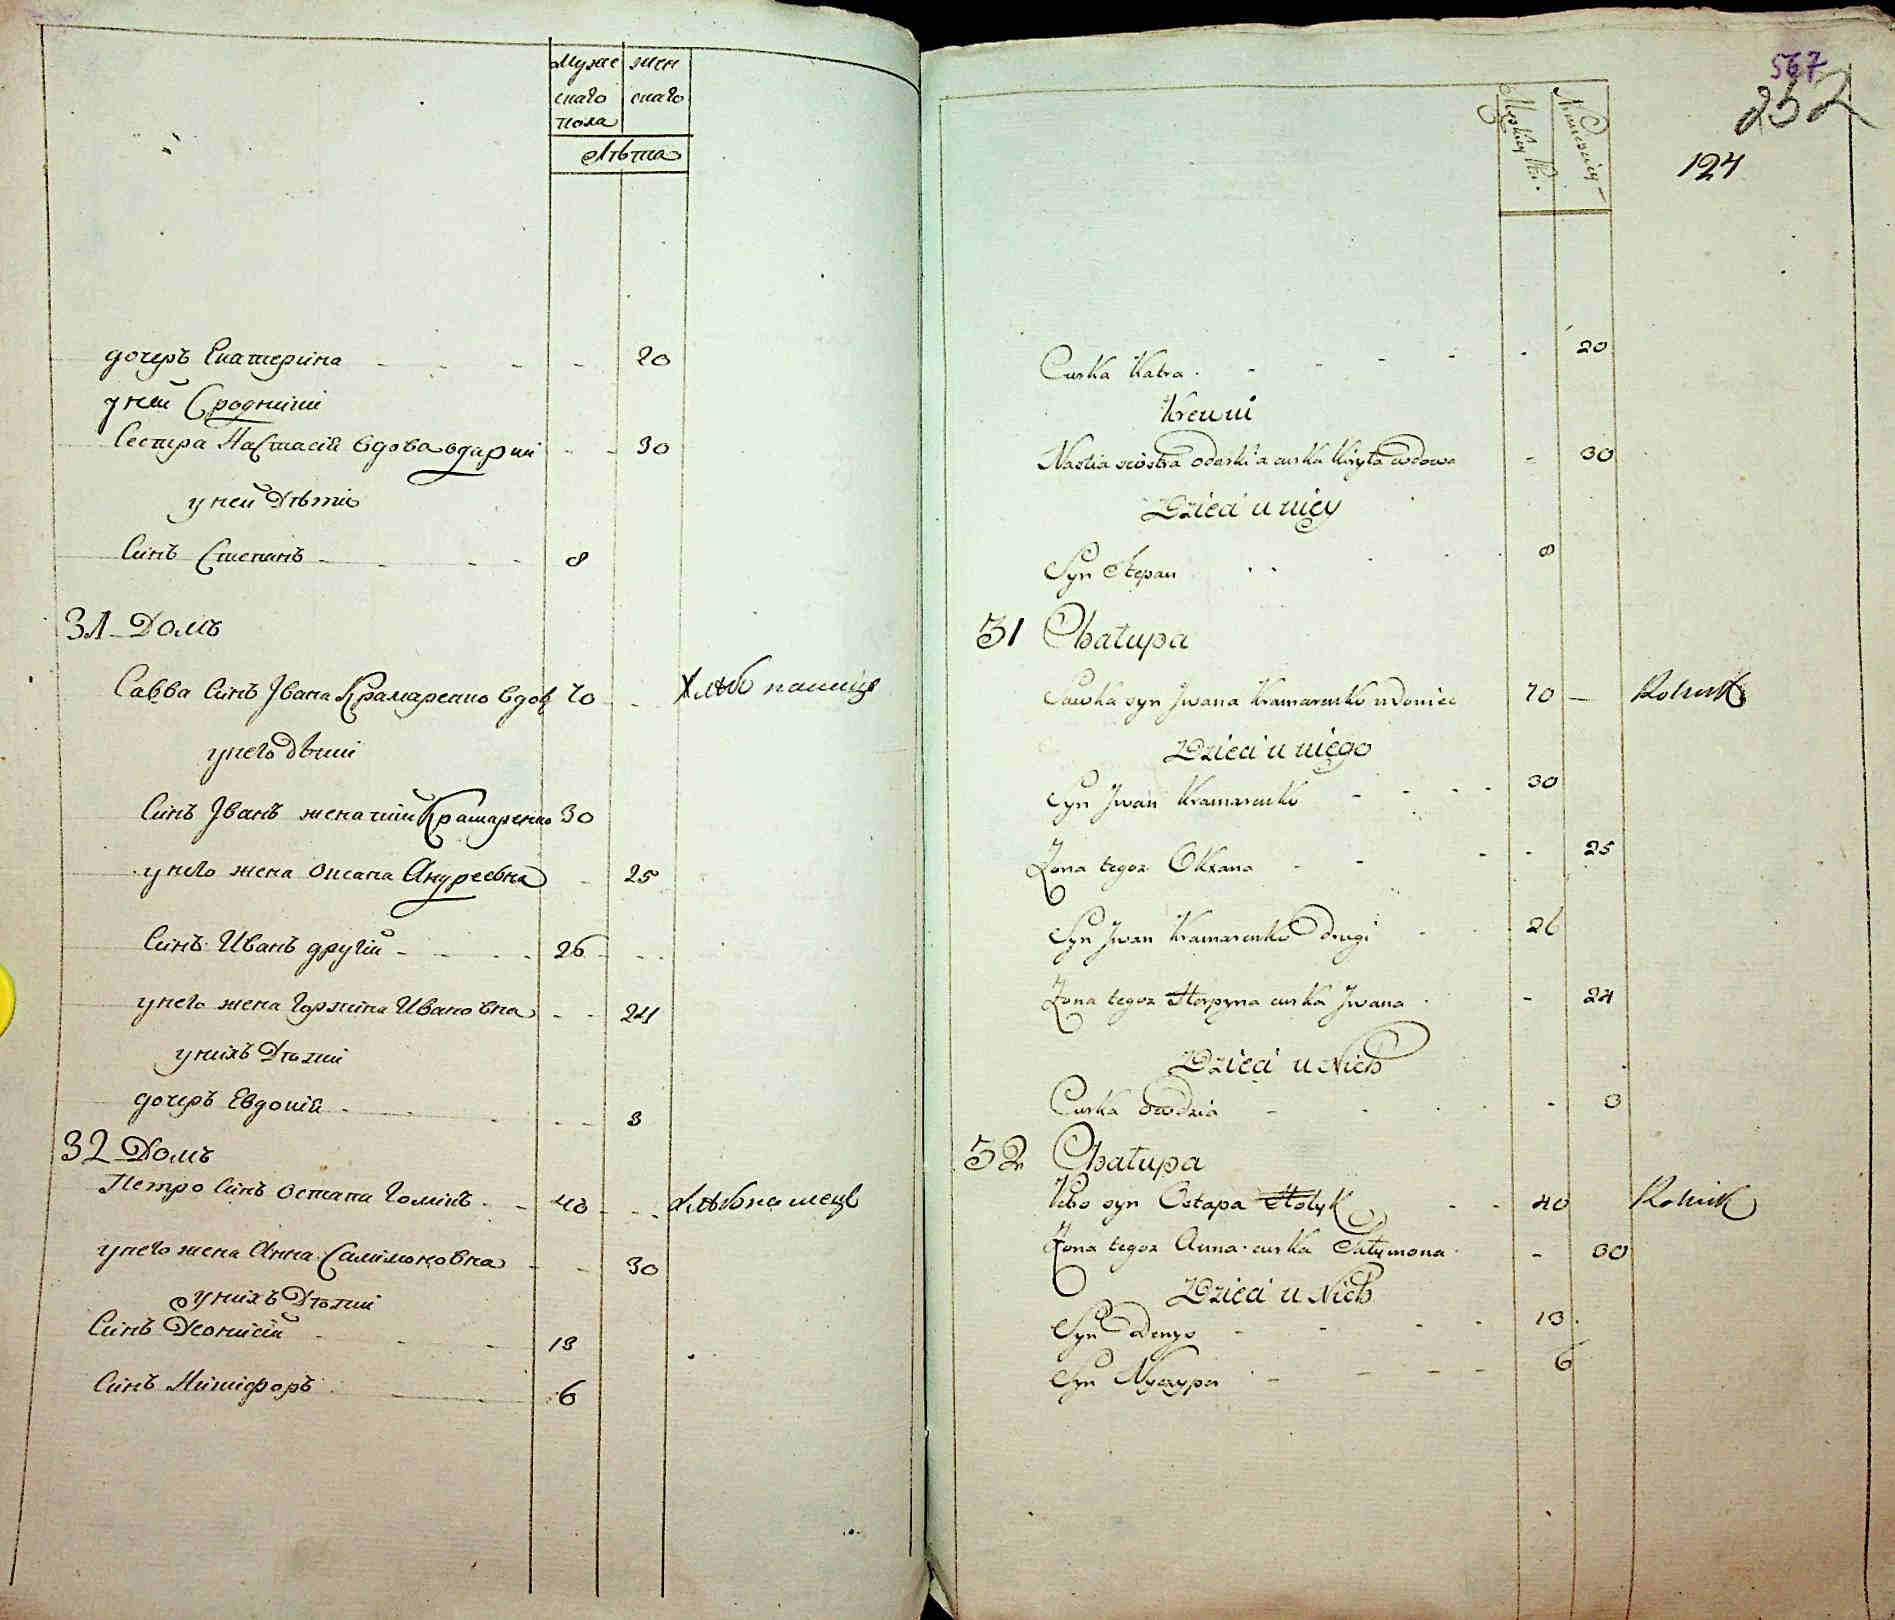 Муже жен
скаго скаго
пола
Лѣта
дочеръ Екатерина 20
у ней Сродники
Сестра Настасій вдова 30
у ней Дѣти
Синъ Степанъ 8
31 Домъ
Савва Синъ Івана Крамаренко вдов 70 Хлѣбопашецъ
у него дѣти
Синъ Іванъ женатий Крамаренко 30
у него жена Оксана Андреевна 25
Синъ Иванъ другій 26
у него жена Горпина Ивановна 24
у нихъ Дѣти
дочеръ Евдокія 3
32 Домъ
Петро Синъ Остапа Голикъ 40 Хлѣбопашецъ
у него жена Анна Салимоновна 30
у нихъ Дѣти
Синъ Деонисій 13
Синъ Никифоръ 6
567
252
124
Curka Katra 20
Krewni
Nastia siostra Odarki a curka Kiryła wdowa 30
Dzieci u niey
Syn Stepan 8
31 Chałupa
Sawka syn Jwana Kramarenko wdowiec 70 Rolnik
Dzieci u niego
Syn Jwan Kramarenko 30
Żona tegoz Oksana 25
Syn Jwan Kramarenko drugi 26
Żona tegoz Horpyna curka Jwana 24
Dzieci u Nich
Curka Owdzia 3
32 Chałupa
Petro syn Ostapa Hołyk 40 Rolnik
Żona tegoz Anna curka Sałymona 30
Dzieci u Nich
Syn Denys 13
Syn Nyczypor 6